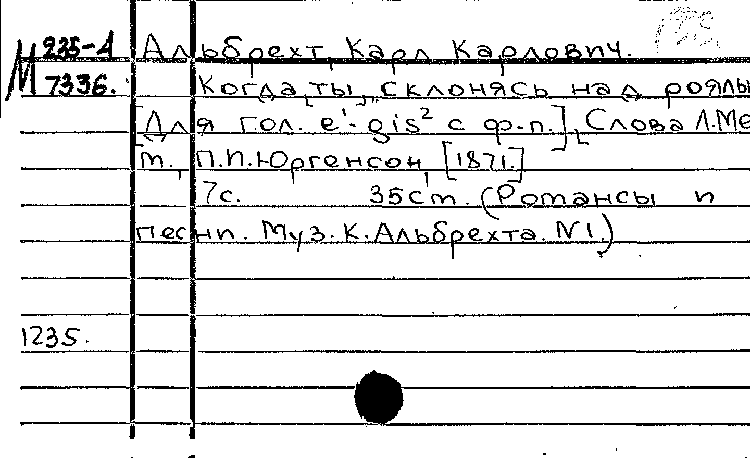 М 235-4 Альбрехт, Карл Карлович.
7336. Когда ты, склонясь над роялью
[Для гол. e¹-gis² с ф-п.], Слова Л.Ме
М., П.И.Юргенсон, [1871.]
7с. 35см. (Романсы и
песни. Муз. К.Альбрехта. N1.)
1235.